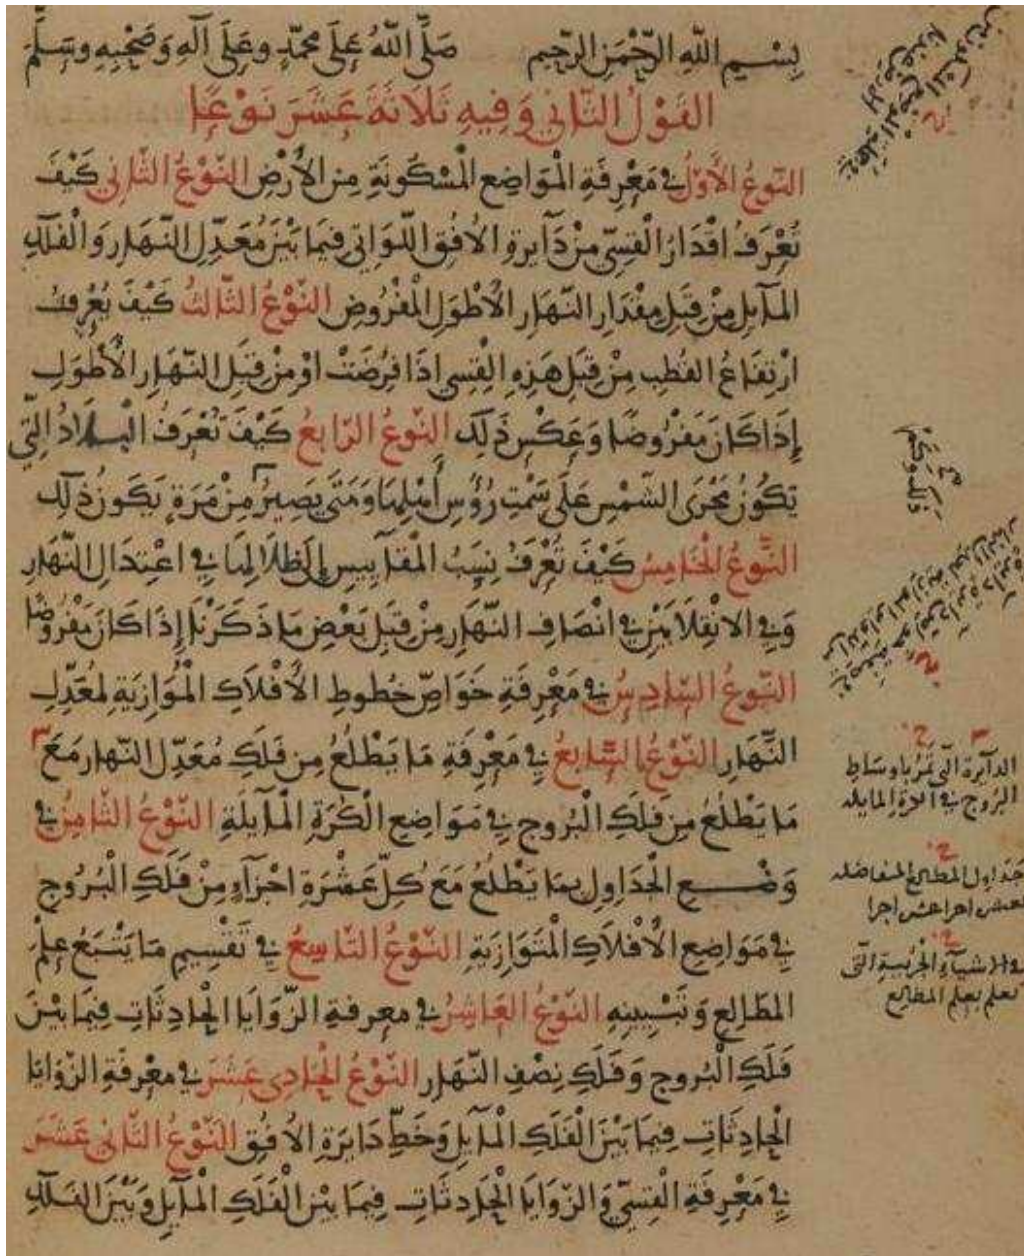 بِسْمِ اللهِ الرَّحْمٰنِ الرَّحِيمِ صَلَّى اللهُ عَلَى مُحَمَّدٍ وعَلَى آلِهِ وَصَحْبِهِ وسَلَّمَ
القَوْلُ الثَّانِي وَفِيهِ ثَلَاثَةَ عَشَرَ نَوْعًا
النَّوعُ الأوَّلُ في مَعْرِفَةِ الْمَوَاضِعِ الْمَسْكُونَةِ مِنَ الأَرْضِ النَّوْعُ الثَّانِي كَيْفَ
تُعْرَفُ اقْدَارُ الْقِسِيِّ مِنْ دَآيرةِ الأُفُقِ اللَّوَاتِي فِيمَا بَيْنَ مُعَدِّلِ النَّهَارِ وَالْفَلَكِ
المَآيلِ مِنْ قِبَلِ مِقْدَارِ النَّهَارِ الأَطْوَلِ الْمَفْرُوضِ النَّوْعُ الثَّالثُ كَيْفَ يُعْرَفُ
ارْتِفَاعُ القُطْبِ مِنْ قِبَلِ هَذِهِ الْقِسِي اذَا فُرِضَتْ اوْ مِنْ قِبَلِ النَّهَارِ الأَطْوَلِ
إِذَا كَانَ مَفْرُوضًا وَعَكْسُ ذَلِكَ النَّوْعُ الرَّابعُ كَيْفَ تُعْرَفُ الْبِلَادُ الَّتِي
يَكُونُ مَجْرَى الشَّمْسِ عَلَى سَمْتِ رُؤُسِ أَهْلِهَا وَمَتَى يَصِيرُ وكَمْ مِنْ مَرَةٍ يَكُونُ ذَلِكَ
النَّوْعُ الْخَامِسُ كَيْفَ تُعْرَفُ نِسَبُ الْمَقَآيِيسِ إلَى ظلَالِهَا فِي اعْتِدَالِ النَّهَارِ
وَفِي الانْقِلَابَيْنِ فِي انْصَافِ النَّهَارِ مِنْ قِبَلِ بَعْضِ مَا ذَكَرْنَا إِذَا كَانَ مَفْرُوضًا
النَّوعُ السَّادِسُ فِي مَعْرِفَةِ خَوَاصِّ خُطوطِ الأَفْلَاكِ الْمُوَازِيَةِ لِمُعَدِّلِ
النَّهَارِ النَّوْعُ السَّابعُ فِي مَعْرِفَةِ مَا يَطْلُعُ مِن فَلَكِ مُعَدِّلِ النَّهار مَعَ
مَا يَطْلُعُ مِن فَلَكِ الْبُروجِ فِي مَوَاضِعِ الْكُرَةِ الْمَآيلَةِ النَّوْعُ الثَّامِنُ فِي
وَضْعِ الْجَدَاوِلِ بِمَا يَطْلُعُ مَعَ كُلِّ عَشْرَةِ اجْزَآءٍ مِنْ فَلَكِ الْبُرُوجِ
فِي مَوَاضِعِ الأَفْلَاكِ الْمُتَوَازِيَةِ النَّوْعُ التَّاسِعُ فِي تَقْسِيمِ مَا يَتْبَعُ عِلْمَ
المَطَالِعِ وَتَبْيِينِهِ النَّوْعُ الْعَاشِرُ فِي معرفةِ الزَّوَايَا الْحَادِثَاتِ فِيمَا بَيْنَ
فَلَكِ الْبُروجِ وَفَلَكِ نِصْفِ النَّهَارِ النَّوْعُ الْحَادِي عَشَرَ فِي معْرِفَةِ الزَّوَايَا
الْحَادِثَاتِ فِيمَا بَيْنَ الْفَلَكِ الْمَآيلِ وَخَطِّ دَايرَةِ الأُفُقِ النَّوْعُ الثَّانِي عَشَرَ
فِي مَعْرِفَةِ الْقِسِيِّ وَالزَّوَايَا الْحَادِثَاتِ فِيمَا بَيْن الْفَلَكِ الْمَآيلِ وَبَيْنَ الفَلَكِ
الدآيرة الّتي تمرّ باوساط
البُروج في المايله
جداول المطالع
الجزييّة الّتي
تعلم بعلم المطالع